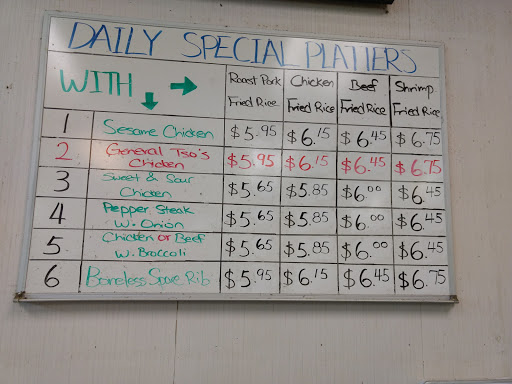 DAILY SPECIAL PLATTERS
WITH → ↓ Roast Pork Fried Rice Chicken Fried Rice Beef Fried Rice Shrimp Fried Rice
1 Sesame Chicken $5.95 $6.15 $6.45 $6.75
2 General Tso's Chicken $5.95 $6.15 $6.45 $6.75
3 Sweet & Sour Chicken $5.65 $5.85 $6.00 $6.45
4 Pepper Steak W. Onion $5.65 $5.85 $6.00 $6.45
5 Chicken or Beef W. Broccoli $5.65 $5.85 $6.00 $6.45
6 Boneless Spare Rib $5.95 $6.15 $6.45 $6.75